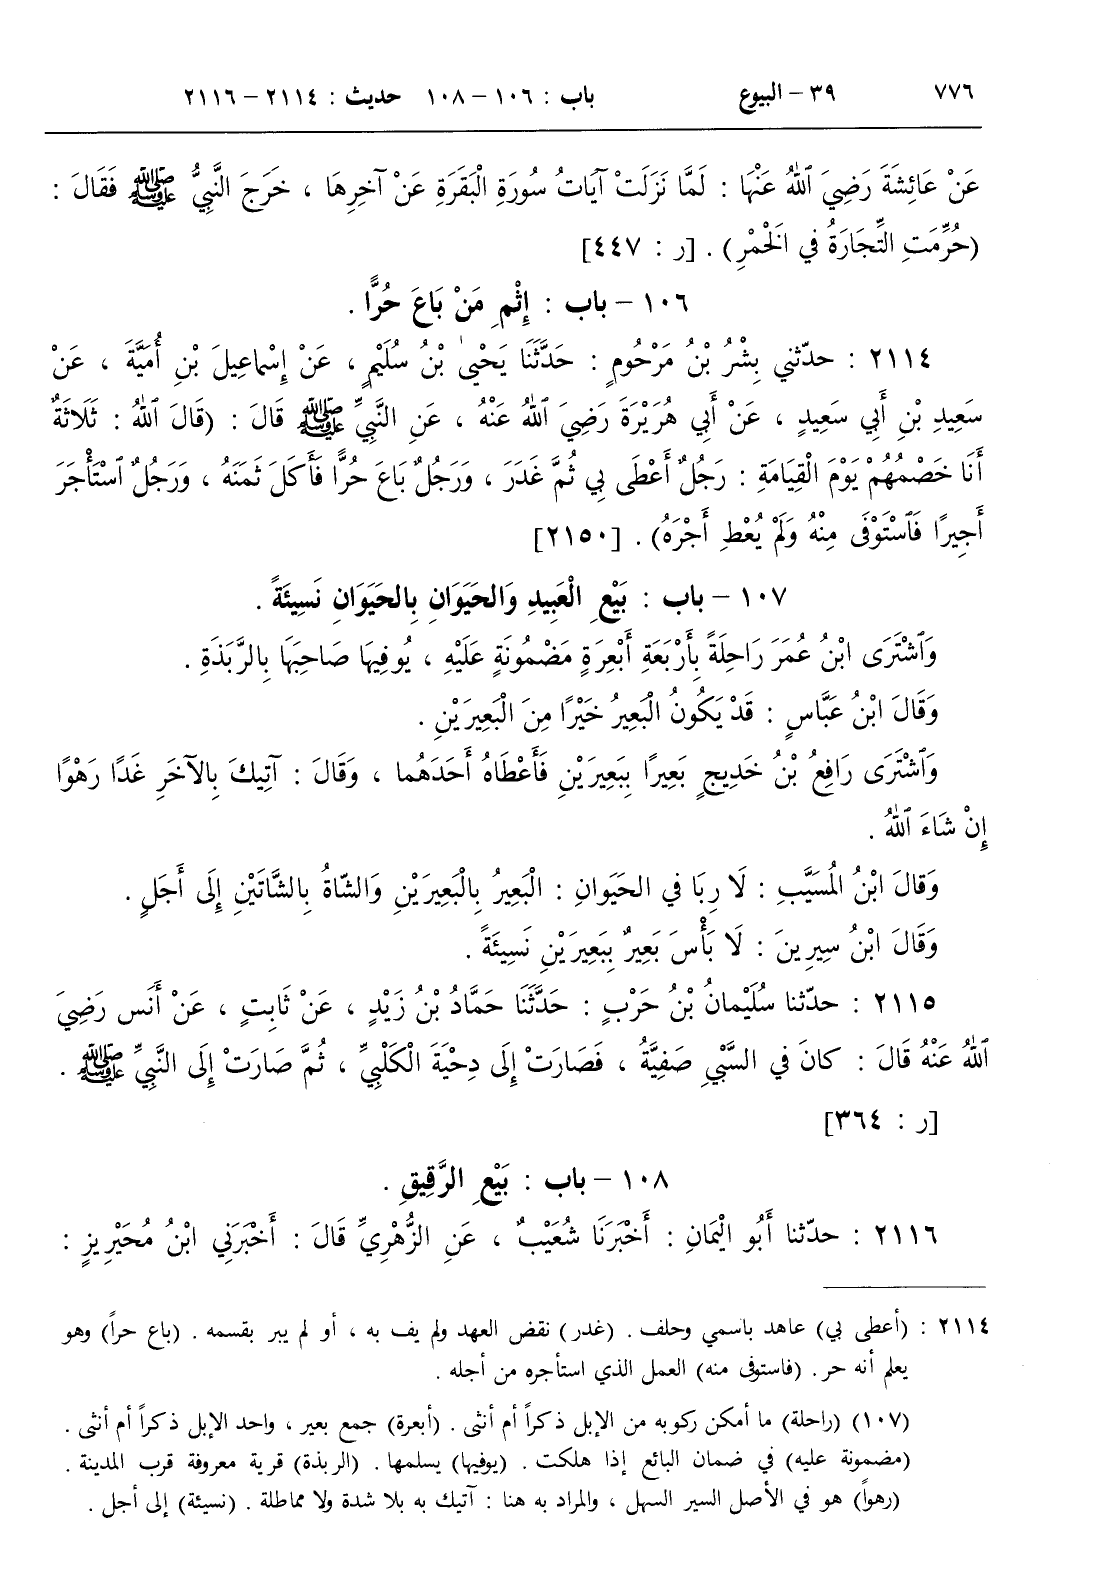 ٧٧٦ ٣٩ – البيوع باب : ١٠٦ – ١٠٨ حديث : ٢١١٤ – ٢١١٦
عَنْ عَائِشَةَ رَضِيَ ٱللهُ عَنْهَا : لَمَّا نَزَلَتْ آيَاتُ سُورَةِ الْبَقَرَةِ عَنْ آخِرِهَا ، خَرَجَ النَّبِيُّ ﷺ فَقَالَ :
(حُرِّمَتِ التِّجَارَةُ في الخَمْرِ) . [ر : ٤٤٧]
١٠٦ – باب : إِثْمِ مَنْ بَاعَ حُرًّا .
٢١١٤ : حدّثني بِشْرُ بْنُ مَرْحُومٍ : حَدَّثَنَا يَحْيىٰ بْنُ سُلَيْمٍ ، عَنْ إِسْماعِيلَ بْنِ أُمَيَّةَ ، عَنْ
سَعِيدِ بْنِ أَبِي سَعِيدٍ ، عَنْ أَبِي هُرَيْرَةَ رَضِيَ ٱللهُ عَنْهُ ، عَنِ النَّبِيِّ ﷺ قَالَ : (قَالَ ٱللهُ : ثَلَاثَةٌ
أَنَا خَصْمُهُمْ يَوْمَ الْقِيَامَةِ : رَجُلٌ أَعْطَى بِي ثُمَّ غَدَرَ ، وَرَجُلٌ بَاعَ حُرًّا فَأَكَلَ ثَمَنَهُ ، وَرَجُلٌ ٱسْتَأْجَرَ
أَجِيرًا فَٱسْتَوْفَى مِنْهُ وَلَمْ يُعْطِ أَجْرَهُ) . [٢١٥٠]
١٠٧ – باب : بَيْعِ الْعَبِيدِ وَالحَيَوَانِ بِالحَيَوَانِ نَسِيئَةً .
وَٱشْتَرَى ابْنُ عُمَرَ رَاحِلَةً بِأَرْبَعَةِ أَبْعِرَةٍ مَضْمُونَةٍ عَلَيْهِ ، يُوفِيهَا صَاحِبَهَا بِالرَّبَذَةِ .
وَقَالَ ابْنُ عَبَّاسٍ : قَدْ يَكُونُ الْبَعِيرُ خَيْرًا مِنَ الْبَعِيرَيْنِ .
وَٱشْتَرَى رَافِعُ بْنُ خَدِيجٍ بَعِيرًا بِبَعِيرَيْنِ فَأَعْطَاهُ أَحَدَهُما ، وَقَالَ : آتِيكَ بِالآخَرِ غَدًا رَهْوًا
إِنْ شَاءَ ٱللهُ .
وَقالَ ابْنُ الْمُسَيَّبِ : لَا رِبَا في الحَيَوانِ : الْبَعِيرُ بِالْبَعِيرَيْنِ وَالشّاةُ بِالشَّاتَيْنِ إِلَى أَجَلٍ .
وَقَالَ ابْنُ سِيرِينَ : لَا بَأْسَ بَعِيرٌ بِبَعِيرَيْنِ نَسِيئَةً .
٢١١٥ : حدّثنا سُلَيْمانُ بْنُ حَرْبٍ : حَدَّثَنَا حَمَّادُ بْنُ زَيْدٍ ، عَنْ ثَابِتٍ ، عَنْ أَنَسٍ رَضِيَ
ٱللهُ عَنْهُ قَالَ : كانَ في السَّبْيِ صَفِيَّةُ ، فَصَارَتْ إِلَى دِحْيَةَ الْكَلْبِيِّ ، ثُمَّ صَارَتْ إِلَى النَّبِيِّ ﷺ .
[ر : ٣٦٤]
١٠٨ – باب : بَيْعِ الرَّقِيقِ .
٢١١٦ : حدّثنا أَبُو الْيَمَانِ : أَخْبَرَنَا شُعَيْبٌ ، عَنِ الزُّهْرِيِّ قَالَ : أَخْبَرَنِي ابْنُ مُحَيْرِيزٍ :
٢١١٤ : (أعطى بي) عاهد باسمي وحلف . (غدر) نقض العهد ولم يف به ، أو لم يبر بقسمه . (باع حراً) وهو
يعلم أنه حر . (فاستوفى منه) العمل الذي استأجره من أجله .
(١٠٧) (راحلة) ما أمكن ركوبه من الإبل ذكراً أم أنثى . (أبعرة) جمع بعير ، واحد الإبل ذكراً أم أنثى .
(مضمونة عليه) في ضمان البائع إذا هلكت . (يوفيها) يسلمها . (الربذة) قرية معروفة قرب المدينة .
(رهواً) هو في الأصل السير السهل ، والمراد به هنا : آتيك به بلا شدة ولا مماطلة . (نسيئة) إلى أجل .